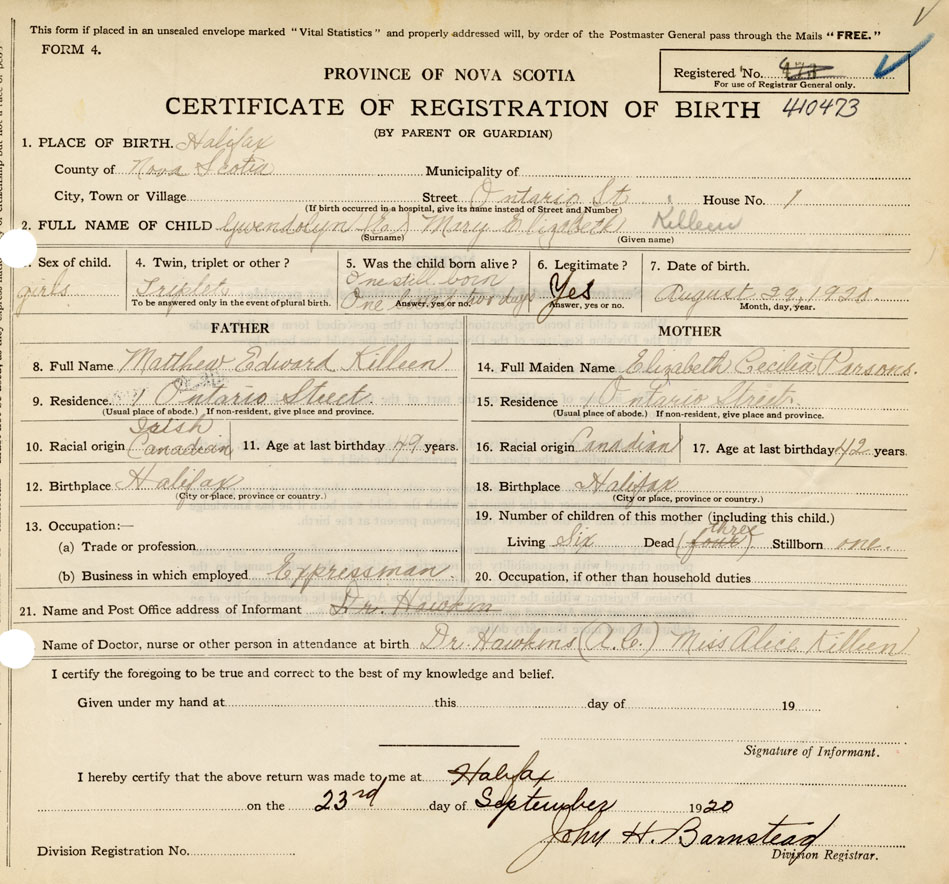 This form if placed in an unsealed envelope marked "Vital Statistics" and properly addressed will, by order of the Postmaster General pass through the Mails "FREE."
FORM 4.
PROVINCE OF NOVA SCOTIA
Registered No. 473
For use of Registrar General only.
CERTIFICATE OF REGISTRATION OF BIRTH 410473
(BY PARENT OR GUARDIAN)
1. PLACE OF BIRTH. Halifax
County of Nova Scotia Municipality of
City, Town or Village Street Ontario St House No. 1
(If birth occurred in a hospital, give its name instead of Street and Number)
2. FULL NAME OF CHILD Gwendolyn Mary Elizabeth Killeen
(Surname) (Given name)
Sex of child. 4. Twin, triplet or other? 5. Was the child born alive? 6. Legitimate? 7. Date of birth.
girls Triplet One still born Yes August 29, 1920.
One lived two days
To be answered only in the event of plural birth. Answer, yes or no. Answer, yes or no. Month, day, year.
FATHER MOTHER
8. Full Name Matthew Edward Killeen 14. Full Maiden Name Elizabeth Cecilia Parsons.
9. Residence. 1 Ontario Street. 15. Residence 1 Ontario Street.
(Usual place of abode.) If non-resident, give place and province. (Usual place of abode.) If non-resident, give place and province.
Irish
10. Racial origin Canadian 11. Age at last birthday 49 years. 16. Racial origin Canadian 17. Age at last birthday 42 years.
12. Birthplace Halifax 18. Birthplace Halifax
(City or place, province or country.) (City or place, province or country.)
13. Occupation:— 19. Number of children of this mother (including this child.)
three
(a) Trade or profession Living Six Dead (four) Stillborn one.
(b) Business in which employed Expressman. 20. Occupation, if other than household duties
21. Name and Post Office address of Informant Dr. Hawkin
Name of Doctor, nurse or other person in attendance at birth Dr. Hawkins (A.C.) Miss Alice Killeen
I certify the foregoing to be true and correct to the best of my knowledge and belief.
Given under my hand at this day of 19
Signature of Informant.
I hereby certify that the above return was made to me at Halifax
on the 23rd day of September 1920
John H. Barnstead
Division Registration No. Division Registrar.